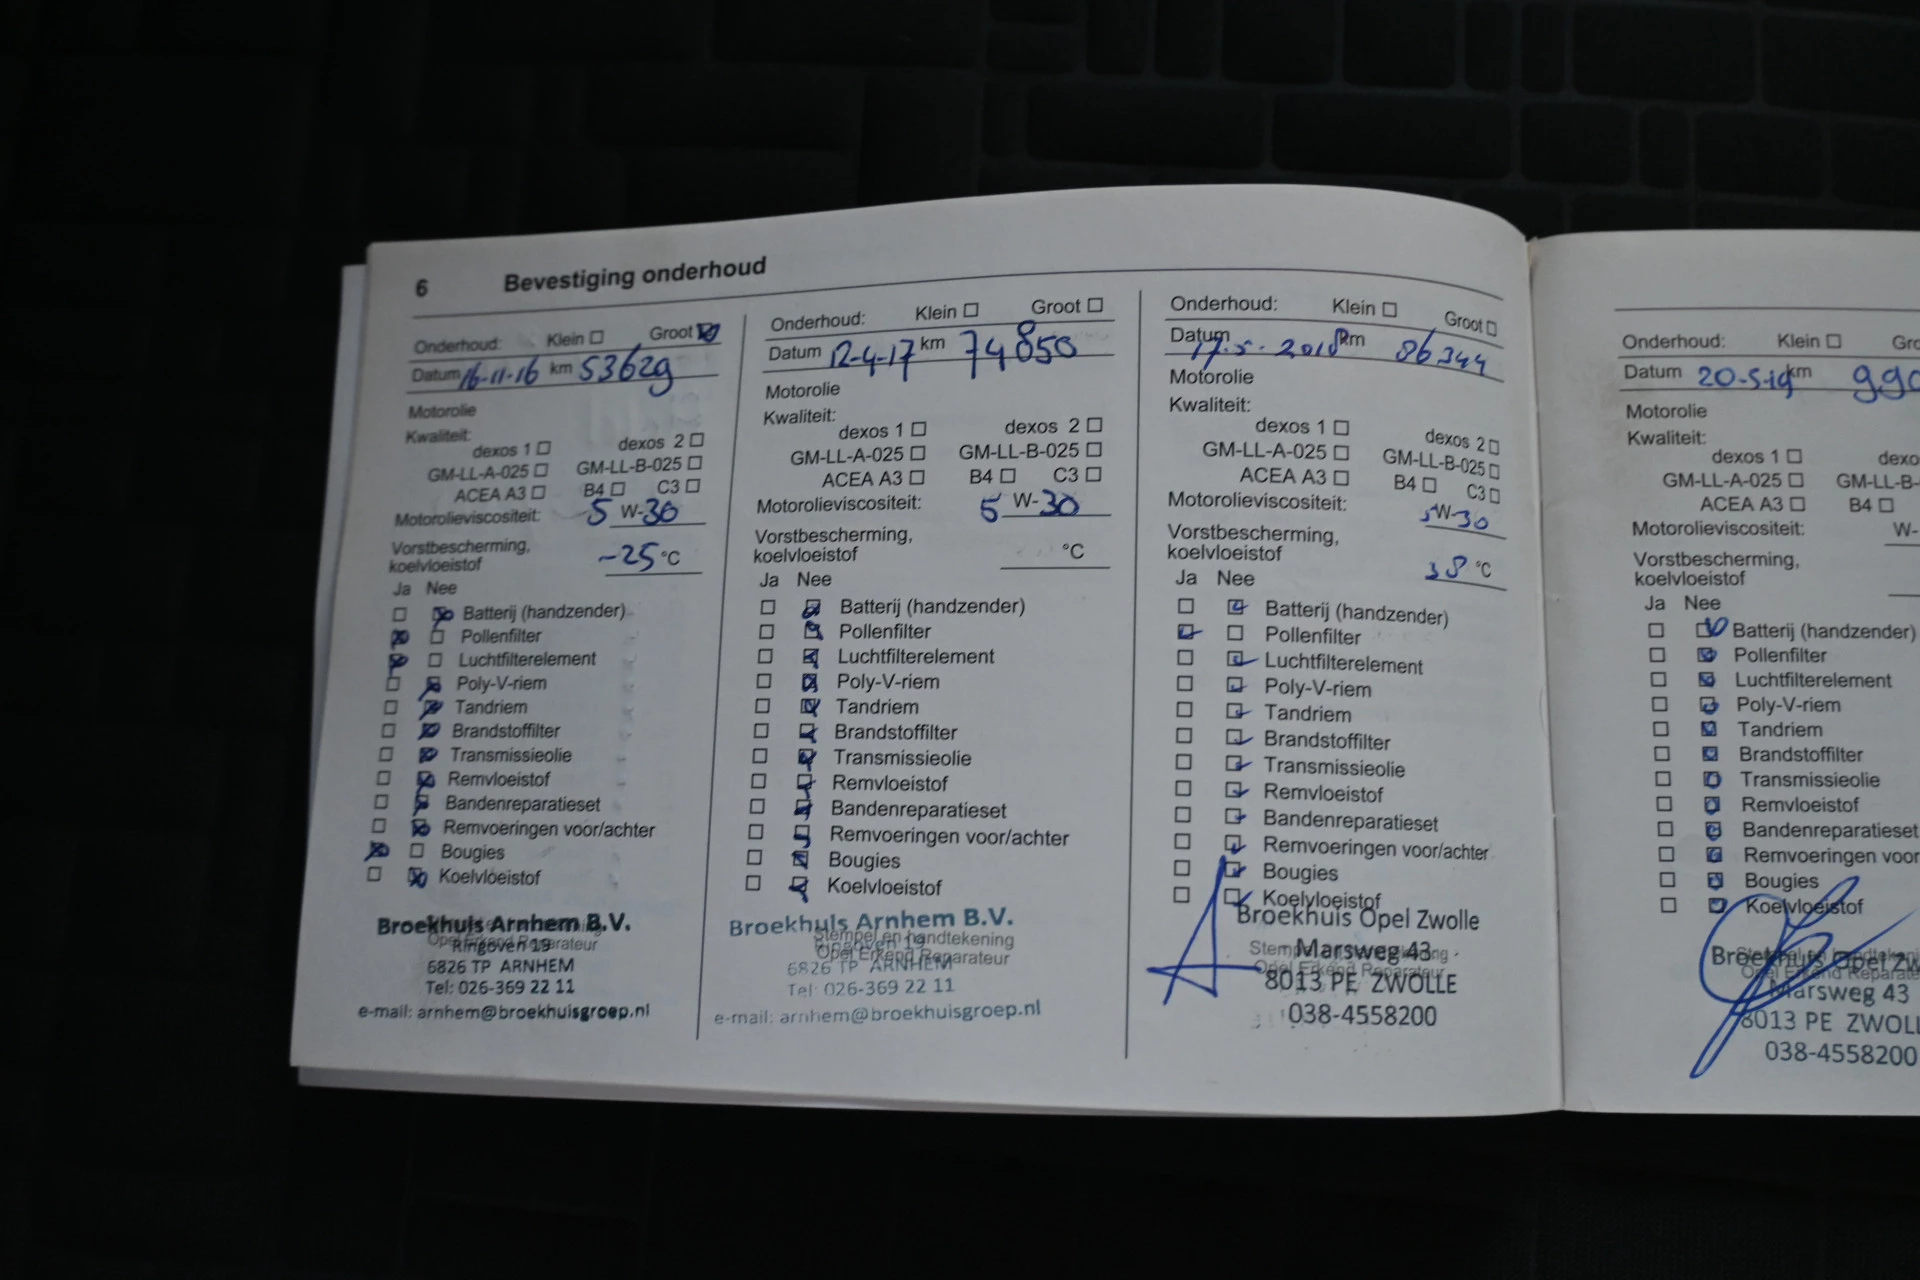 6 Bevestiging onderhoud
Onderhoud: Klein ☐ Groot ☒
Datum 16-11-16 km 53629
Motorolie
Kwaliteit:
dexos 1 ☐ dexos 2 ☐
GM-LL-A-025 ☐ GM-LL-B-025 ☐
ACEA A3 ☐ B4 ☐ C3 ☐
Motorolieviscositeit: 5 W-30
Vorstbescherming,
koelvloeistof -25 °C
Ja Nee
☐ ☒ Batterij (handzender)
☒ ☐ Pollenfilter
☒ ☐ Luchtfilterelement
☐ ☒ Poly-V-riem
☐ ☒ Tandriem
☐ ☒ Brandstoffilter
☐ ☒ Transmissieolie
☐ ☒ Remvloeistof
☐ ☒ Bandenreparatieset
☐ ☒ Remvoeringen voor/achter
☒ ☐ Bougies
☐ ☒ Koelvloeistof
Broekhuis Arnhem B.V.
Ringoven 19
Opel Erkend Reparateur
6826 TP ARNHEM
Tel: 026-369 22 11
e-mail: arnhem@broekhuisgroep.nl
Onderhoud: Klein ☐ Groot ☐
Datum 12-4-17 km 74850
Motorolie
Kwaliteit:
dexos 1 ☐ dexos 2 ☐
GM-LL-A-025 ☐ GM-LL-B-025 ☐
ACEA A3 ☐ B4 ☐ C3 ☐
Motorolieviscositeit: 5 W-30
Vorstbescherming,
koelvloeistof °C
Ja Nee
☐ ☒ Batterij (handzender)
☐ ☒ Pollenfilter
☐ ☒ Luchtfilterelement
☐ ☒ Poly-V-riem
☐ ☒ Tandriem
☐ ☒ Brandstoffilter
☐ ☒ Transmissieolie
☐ ☒ Remvloeistof
☐ ☒ Bandenreparatieset
☐ ☒ Remvoeringen voor/achter
☐ ☒ Bougies
☐ ☒ Koelvloeistof
Broekhuis Arnhem B.V.
Stempel en handtekening
Ringoven 19
Opel Erkend Reparateur
6826 TP ARNHEM
Tel: 026-369 22 11
e-mail: arnhem@broekhuisgroep.nl
Onderhoud: Klein ☐ Groot ☐
Datum 17-5-2018 km 86344
Motorolie
Kwaliteit:
dexos 1 ☐ dexos 2 ☐
GM-LL-A-025 ☐ GM-LL-B-025 ☐
ACEA A3 ☐ B4 ☐ C3 ☐
Motorolieviscositeit: 5 W-30
Vorstbescherming,
koelvloeistof 38 °C
Ja Nee
☐ ☑ Batterij (handzender)
☑ ☐ Pollenfilter
☐ ☑ Luchtfilterelement
☐ ☑ Poly-V-riem
☐ ☑ Tandriem
☐ ☑ Brandstoffilter
☐ ☑ Transmissieolie
☐ ☑ Remvloeistof
☐ ☑ Bandenreparatieset
☐ ☑ Remvoeringen voor/achter
☐ ☑ Bougies
☐ ☑ Koelvloeistof
Broekhuis Opel Zwolle
Marsweg 43
Opel Erkend Reparateur
8013 PE ZWOLLE
038-4558200
Onderhoud: Klein ☐ Gro
Datum 20-5-19 km 990
Motorolie
Kwaliteit:
dexos 1 ☐ dexo
GM-LL-A-025 ☐ GM-LL-B-
ACEA A3 ☐ B4 ☐
Motorolieviscositeit: W-
Vorstbescherming,
koelvloeistof
Ja Nee
☐ ☑ Batterij (handzender)
☐ ☑ Pollenfilter
☐ ☑ Luchtfilterelement
☐ ☑ Poly-V-riem
☐ ☑ Tandriem
☐ ☑ Brandstoffilter
☐ ☑ Transmissieolie
☐ ☑ Remvloeistof
☐ ☑ Bandenreparatieset
☐ ☑ Remvoeringen voor
☐ ☑ Bougies
☐ ☑ Koelvloeistof
Broekhuis Opel Zw
Marsweg 43
8013 PE ZWOLL
038-4558200